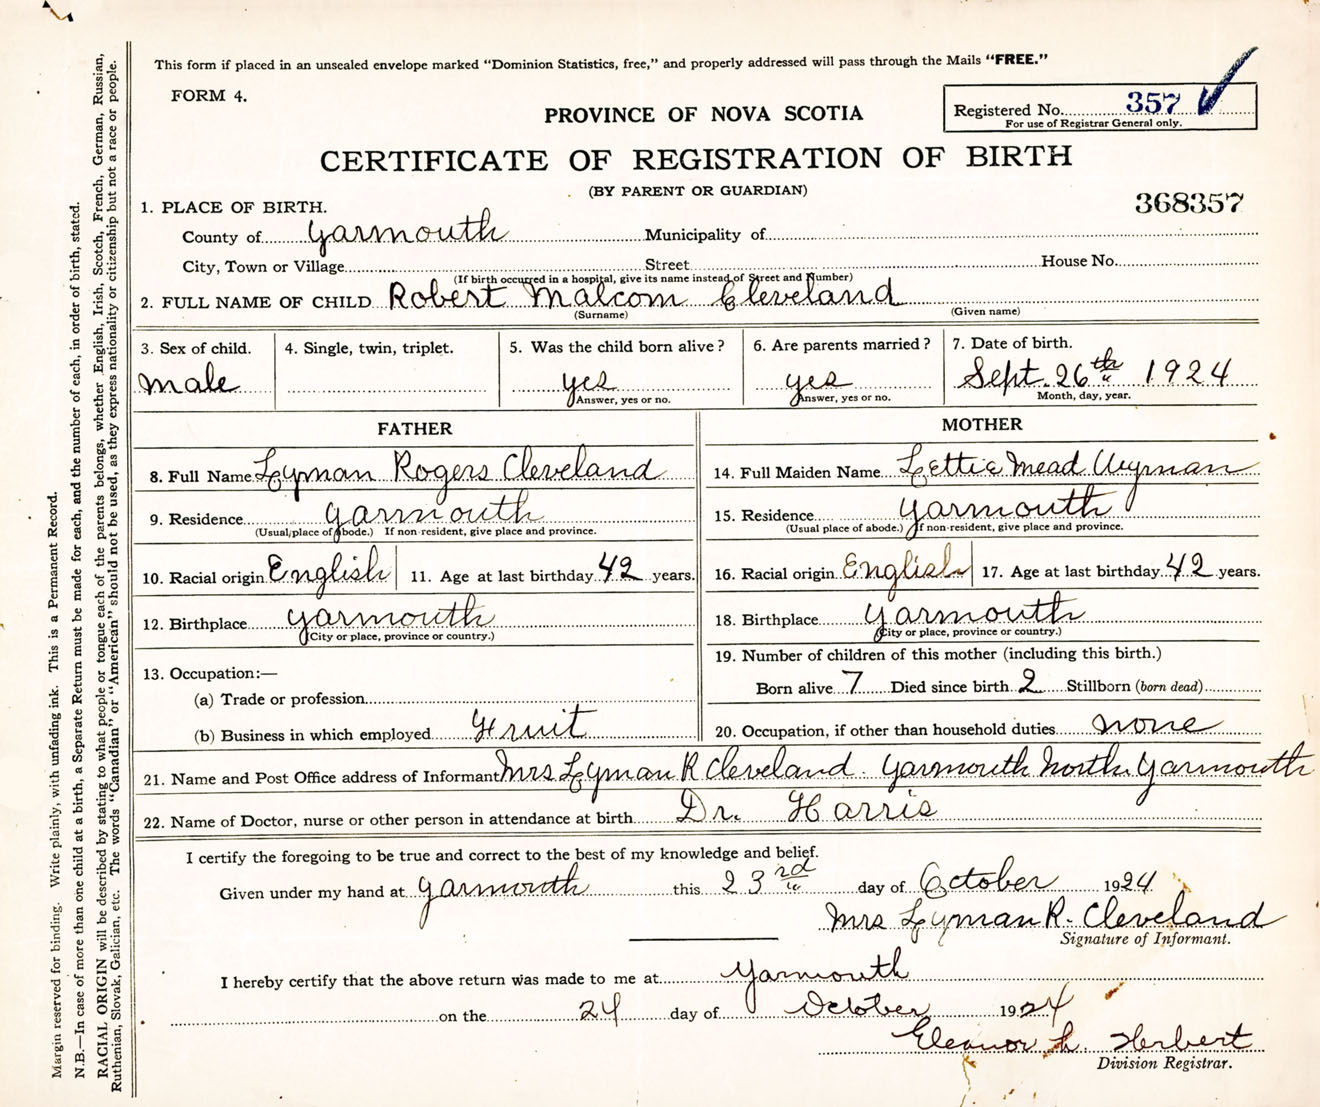 This form if placed in an unsealed envelope marked "Dominion Statistics, free," and properly addressed will pass through the Mails "FREE."
FORM 4.
PROVINCE OF NOVA SCOTIA
Registered No. 357
For use of Registrar General only.
CERTIFICATE OF REGISTRATION OF BIRTH
(BY PARENT OR GUARDIAN)
368357
1. PLACE OF BIRTH.
County of Yarmouth Municipality of
City, Town or Village Street House No.
(If birth occurred in a hospital, give its name instead of Street and Number)
2. FULL NAME OF CHILD Robert Malcom Cleveland
(Surname) (Given name)
3. Sex of child. 4. Single, twin, triplet. 5. Was the child born alive? 6. Are parents married? 7. Date of birth.
male yes yes Sept. 26th 1924
Answer, yes or no. Answer, yes or no. Month, day, year.
FATHER MOTHER
8. Full Name Lyman Rogers Cleveland 14. Full Maiden Name Lettie Mead Wyman
9. Residence Yarmouth 15. Residence Yarmouth
(Usual place of abode.) If non-resident, give place and province. (Usual place of abode.) If non-resident, give place and province.
10. Racial origin English 11. Age at last birthday 42 years. 16. Racial origin English 17. Age at last birthday 42 years.
12. Birthplace Yarmouth 18. Birthplace Yarmouth
(City or place, province or country.) (City or place, province or country.)
13. Occupation:— 19. Number of children of this mother (including this birth.)
(a) Trade or profession Born alive 7 Died since birth 2 Stillborn (born dead)
(b) Business in which employed Fruit 20. Occupation, if other than household duties none
21. Name and Post Office address of Informant Mrs Lyman R Cleveland. Yarmouth North Yarmouth
22. Name of Doctor, nurse or other person in attendance at birth Dr. Harris
I certify the foregoing to be true and correct to the best of my knowledge and belief.
Given under my hand at Yarmouth this 23rd day of October 1924
Mrs Lyman R. Cleveland
Signature of Informant.
I hereby certify that the above return was made to me at Yarmouth
on the 24 day of October 1924
Eleanor L. Herbert
Division Registrar.
Margin reserved for binding. Write plainly, with unfading ink. This is a Permanent Record.
N.B.—In case of more than one child at a birth, a Separate Return must be made for each, and the number of each, in order of birth, stated.
RACIAL ORIGIN will be described by stating to what people or tongue each of the parents belongs, whether English, Irish, Scotch, French, German, Russian,
Ruthenian, Slovak, Galician, etc. The words "Canadian" or "American" should not be used, as they express nationality or citizenship but not a race or people.